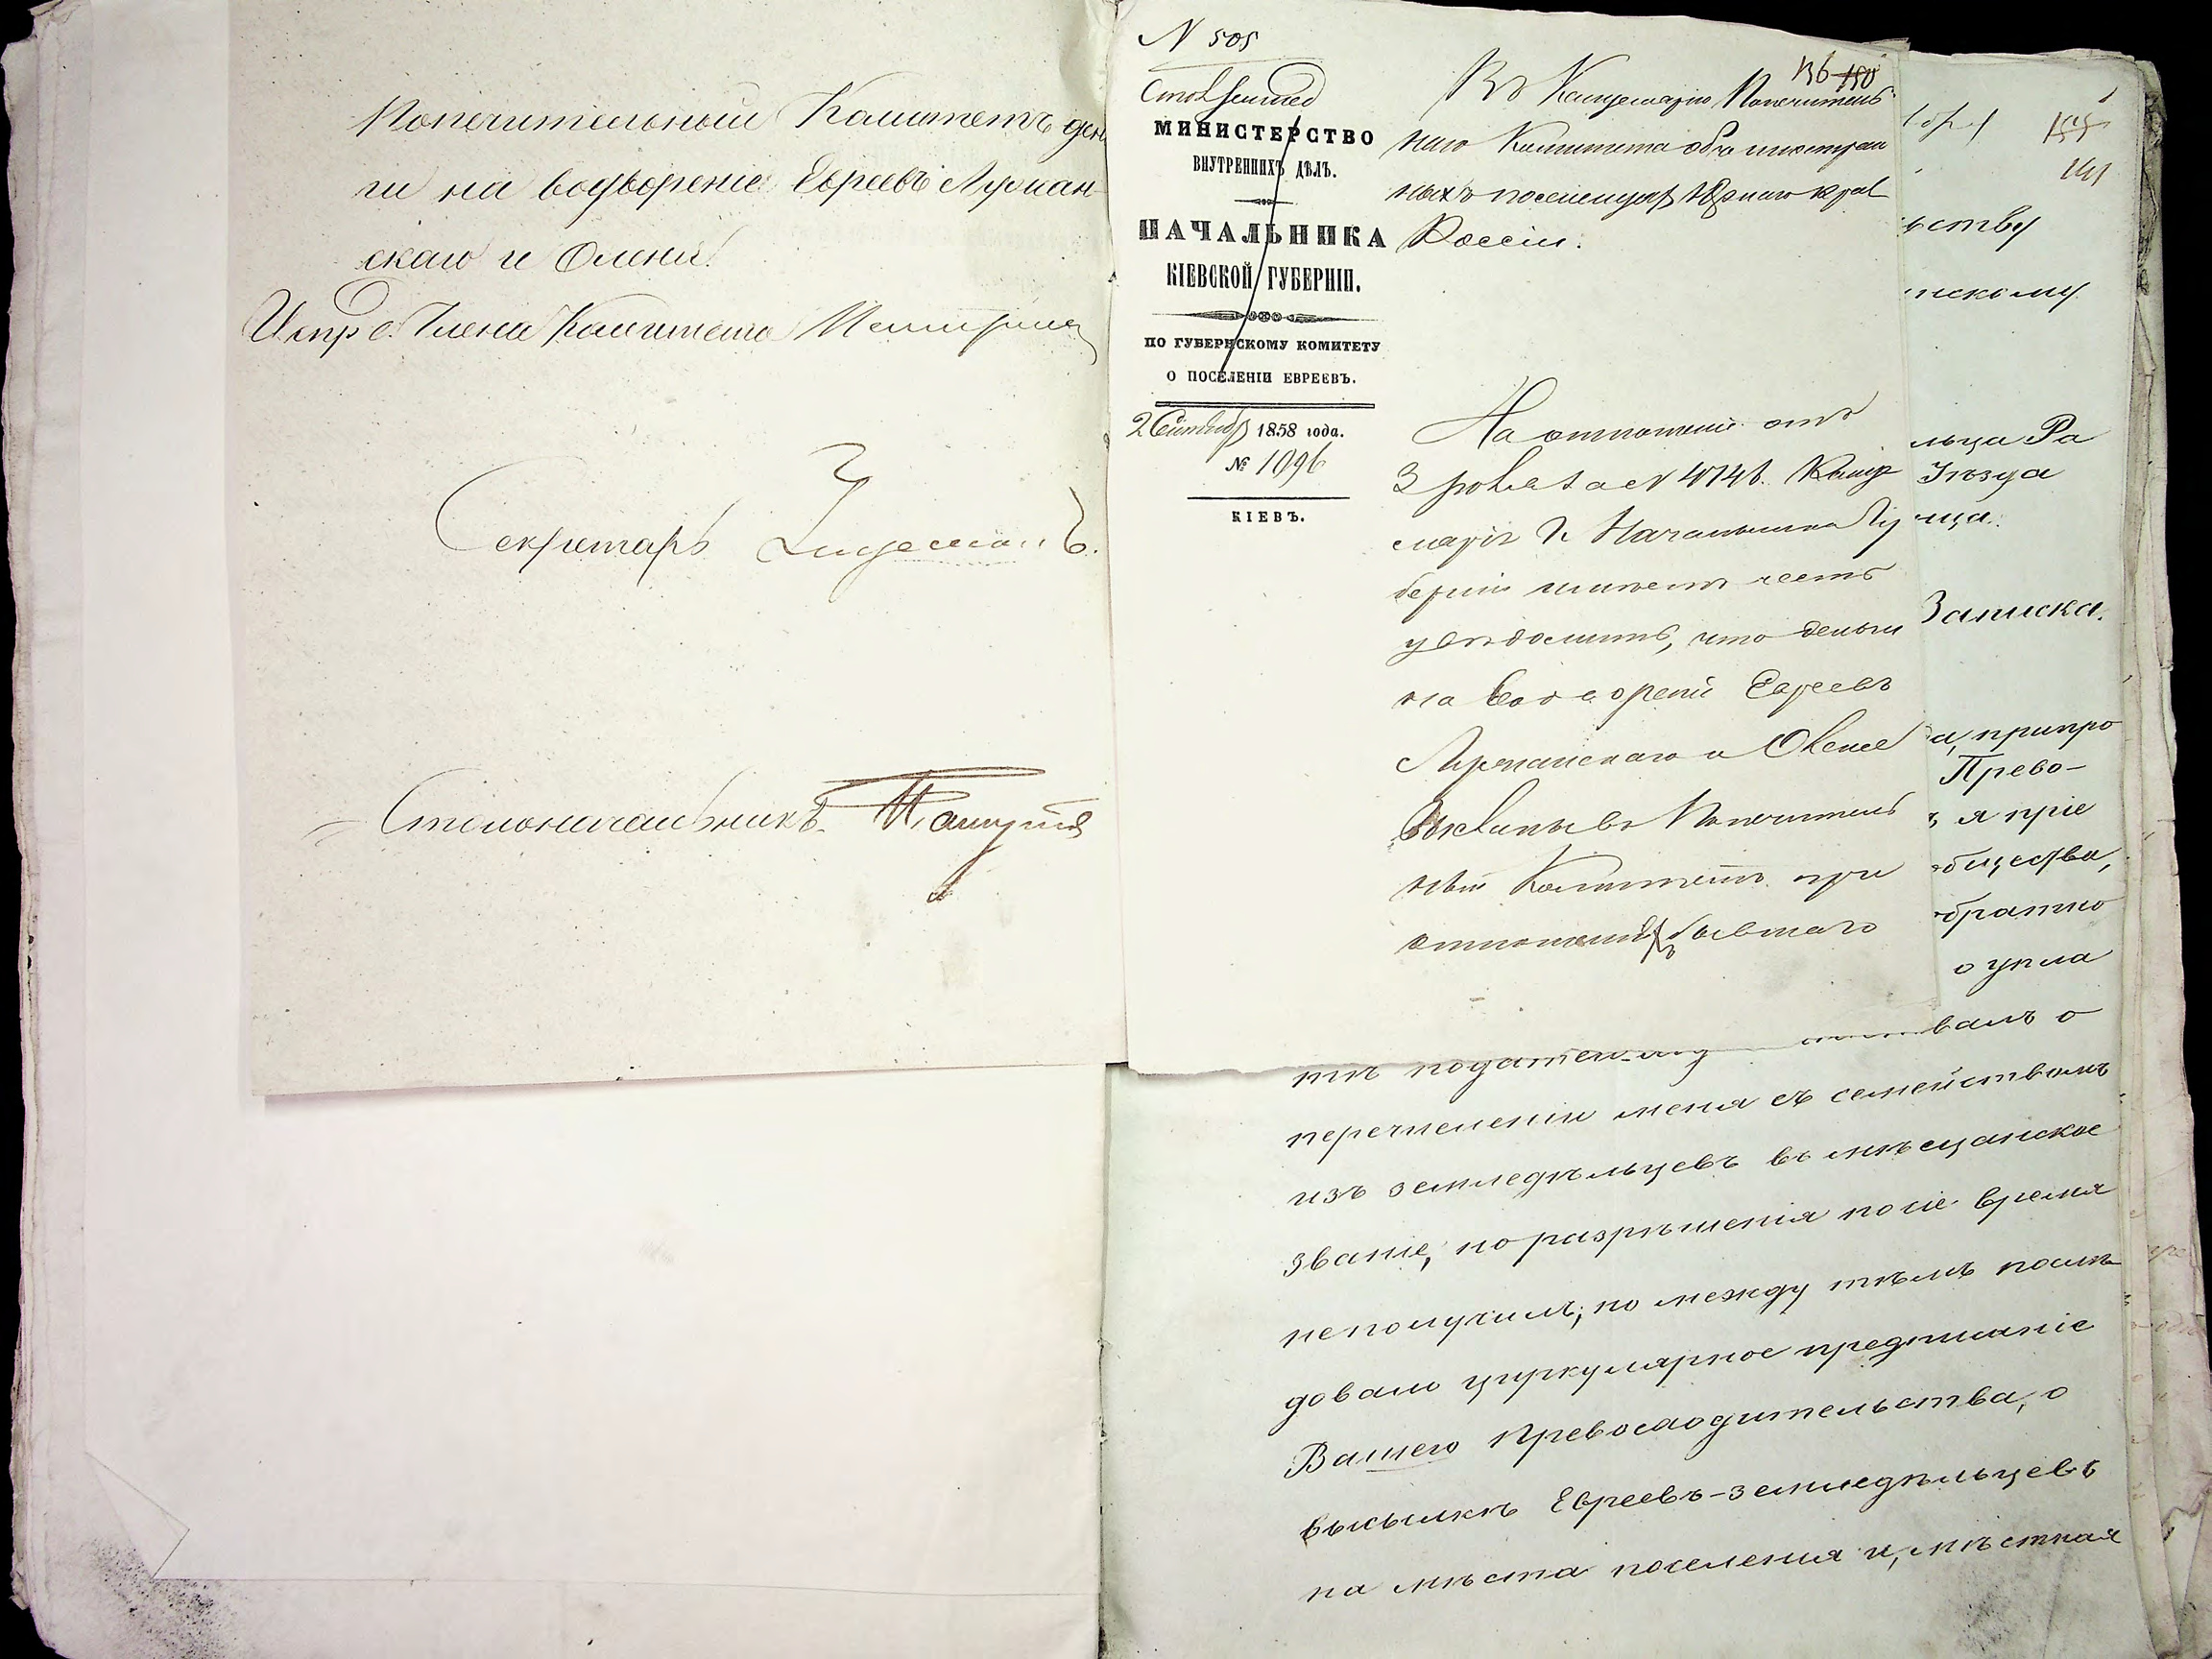 Попечительный Комитетъ день
ги на водвореніе Евреевъ Лучан
скаго и Олени
Испр. д. Члена Комитета
Секретарь
Столоначальникъ
N 505
МИНИСТЕРСТВО
ВНУТРЕННИХЪ ДѢЛЪ.
НАЧАЛЬНИКА
КІЕВСКОЙ ГУБЕРНІИ.
ПО ГУБЕРНСКОМУ КОМИТЕТУ
О ПОСЕЛЕНІИ ЕВРЕЕВЪ.
2 Сентябр 1858 года.
№ 1096
КІЕВЪ.
136 150
Въ Канцелярію Попечитель
наго Комитета объ иностран
ныхъ поселенцахъ Южнаго края
Россіи.
На отношеніе отъ
3 Іюля за N 4748. Канце
лярія Г. Начальника Гу
берніи имѣетъ честь
увѣдомить, что деньги
на водвореніе Евреевъ
и
въ Попечитель
ный Комитетъ при
отношеніи бывшаго
ьству
нскому
льца Ра
Уѣзда
нца.
Записка.
а, припро
Прево-
я прie
общества,
братно
о упла
тѣ податей валъ о
перечисленіи меня съ семействомъ
изъ земледѣльцевъ въ мѣщанское
званіе, но разрѣшенія по сіе время
неполучилъ; но между тѣмъ послѣ
довало циркулярное предписаніе
Вашего Превосходительства, о
высылкѣ Евреевъ-земледѣльцевъ
на мѣста поселенія и, мѣстная